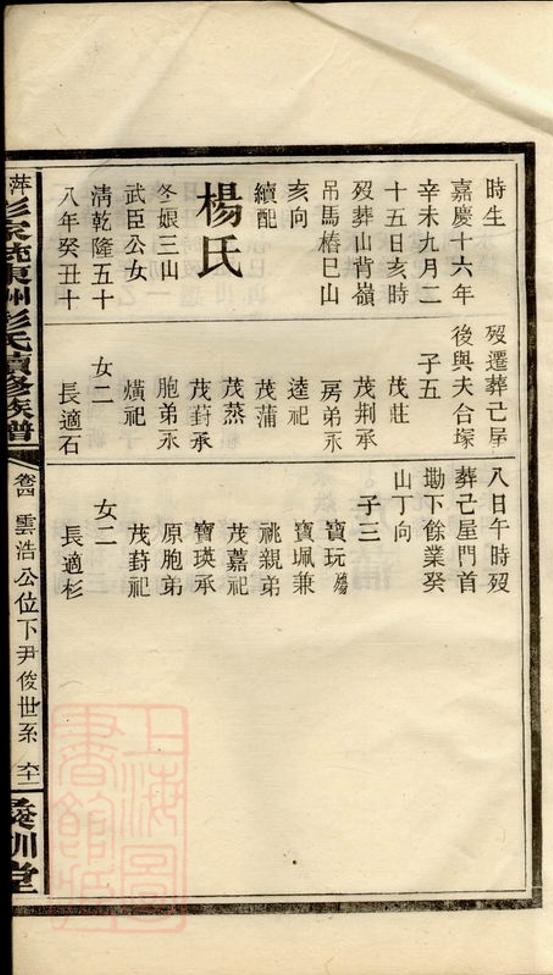 時生
嘉慶十六年
辛未九月二
十五日亥時
歿葬山背嶺
吊馬樁巳山
亥向
續配
楊氏
冬娘三山
武臣公女
清乾隆五十
八年癸丑十
歿遷葬己屋
後與夫合塚
子五
茂莊
茂荆承
房弟永
逵祀
茂蒲
茂蒸
茂葑承
胞弟永
熿祀
女二
長適石
八日午時歿
葬己屋門首
墈下餘業癸
山丁向
子三
寶玩殤
寶珮兼
祧親弟
茂嘉祀
寶瑛承
原胞弟
茂葑祀
女二
長適杉
萍彭家
東洲彭氏續修族譜
卷四
雲浩公位下尹俊世系
六十二
訓堂
上海圖書館藏